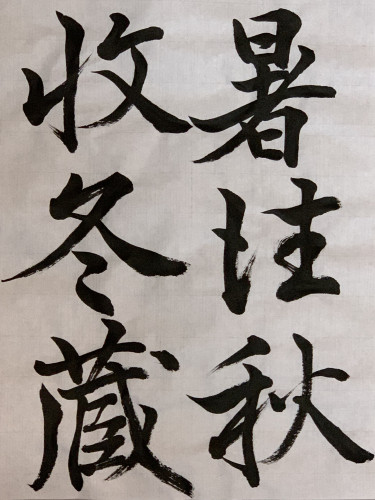 暑往秋
收冬蔵